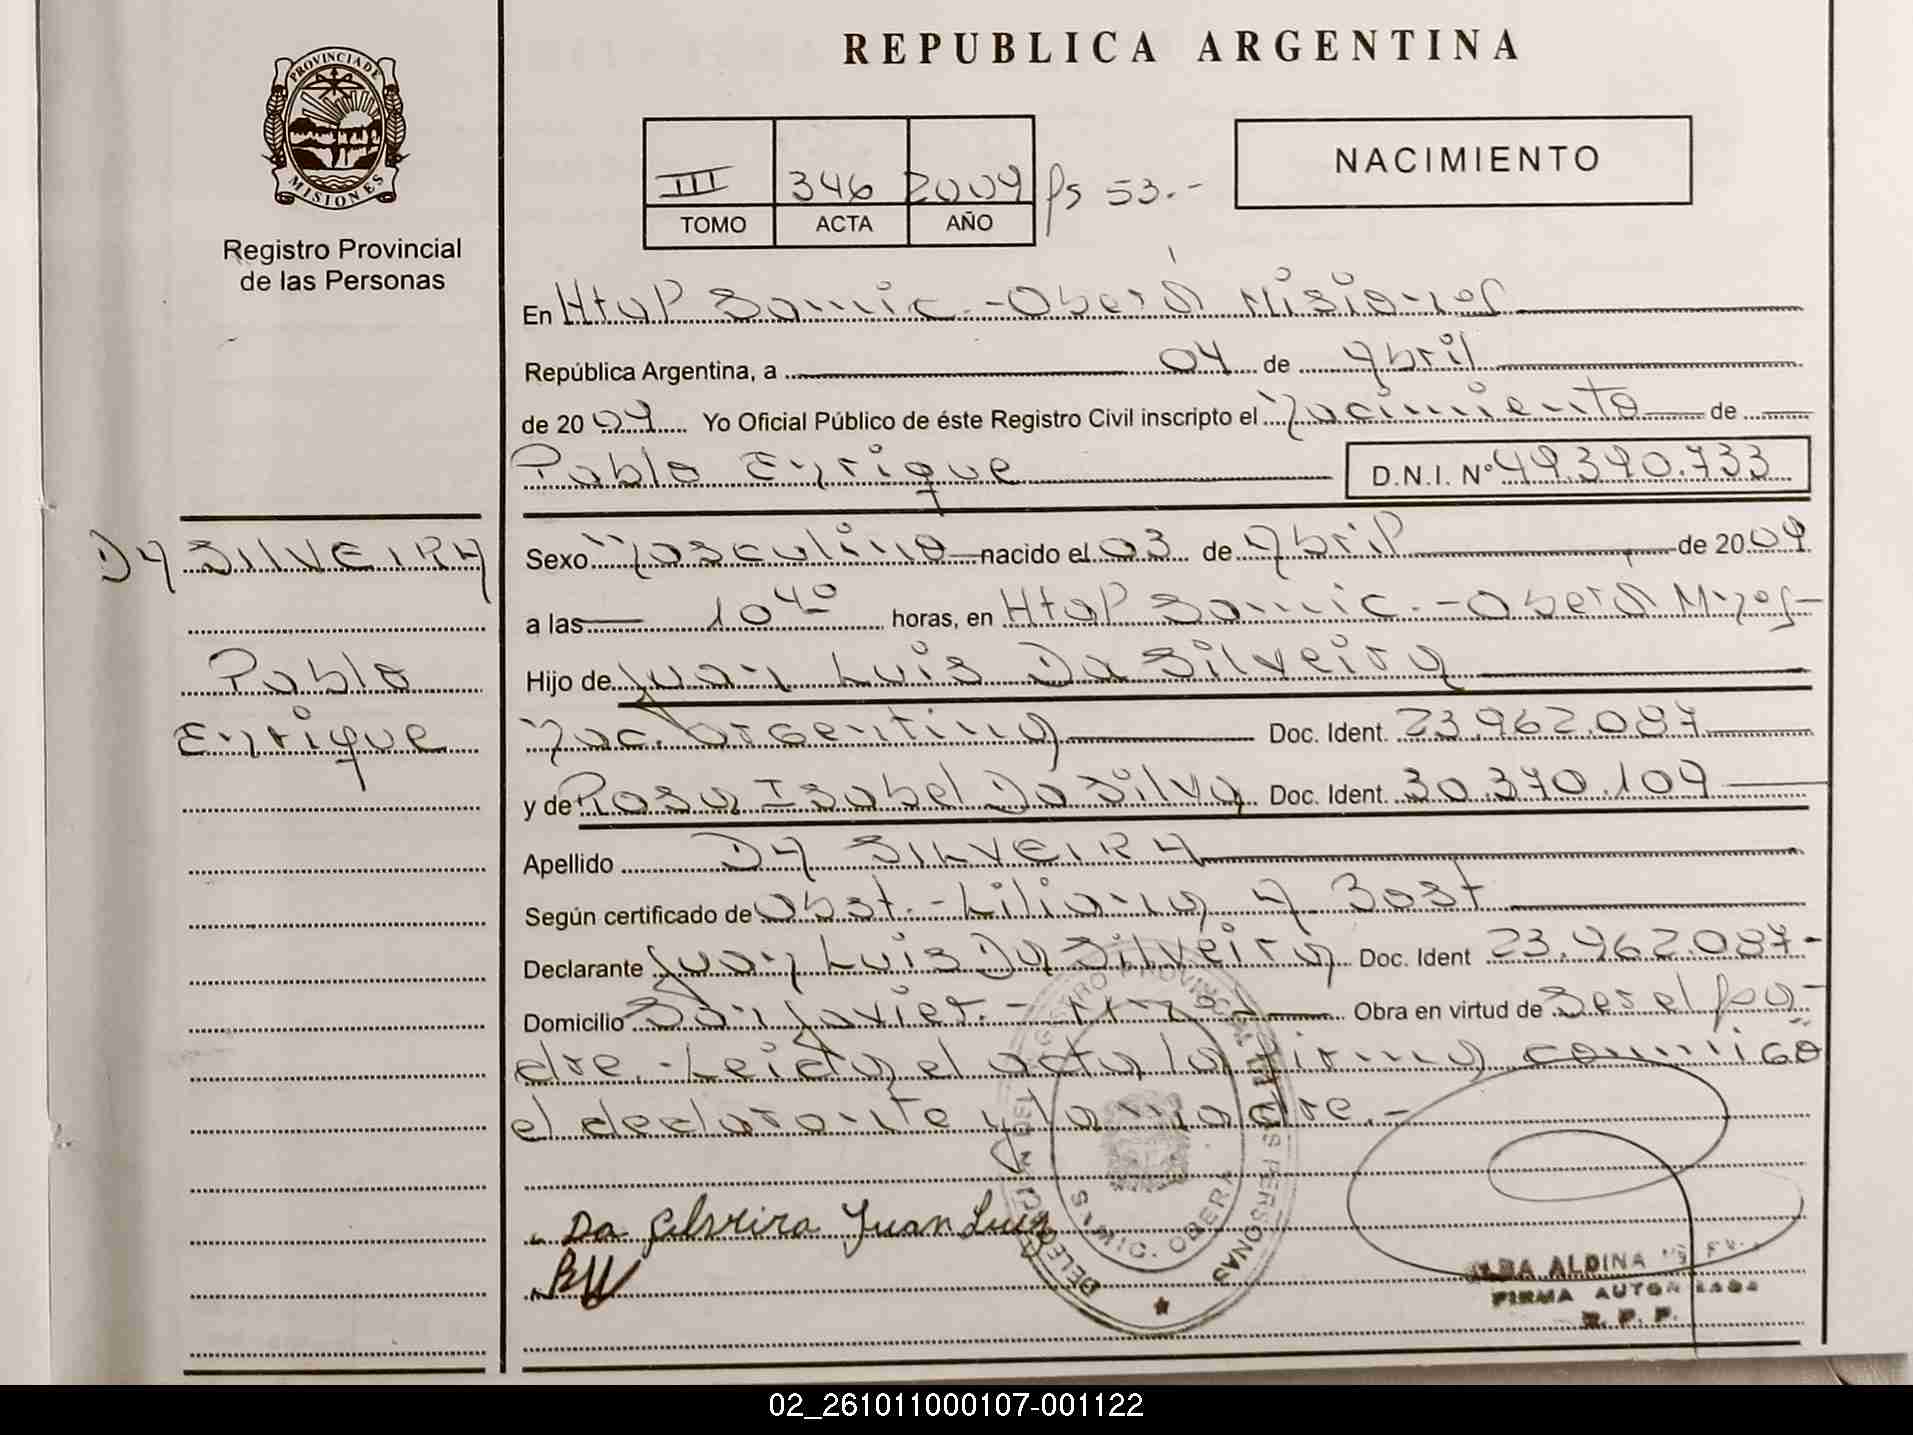 REPUBLICA ARGENTINA
PROVINCIA DE
MISIONES
Registro Provincial
de las Personas
III 346 2009 fs 53.-
TOMO ACTA AÑO
NACIMIENTO
En Htal Samic.-Oberá Misiones
República Argentina, a 04 de Abril
de 2009 Yo Oficial Público de éste Registro Civil inscripto el Nacimiento de
Pablo Enrique D.N.I. Nº 49.390.733
DA SILVEIRA
Pablo
Enrique
Sexo Masculino nacido el 03 de Abril de 2009
a las 10 40 horas, en Htal Samic.-Oberá Mnes-
Hijo de Juan Luis Da Silveira
Nac. Argentina Doc. Ident. 23.962.087
y de Rosa Isabel Da Silva Doc. Ident. 30.370.109
Apellido DA SILVEIRA
Según certificado de Obst.-Liliana A Bost
Declarante Juan Luis Da Silveira Doc. Ident 23.962.087-
Domicilio San Javier.- Obra en virtud de Ser el pa-
dre.-Leida el acta la firma conmigo
el declarante y la madre.-
Da Silveira Juan Luis
ALBA ALDINA
FIRMA AUTORIZADA
R. P. P.
SAMIC. OBERA
02_261011000107-001122